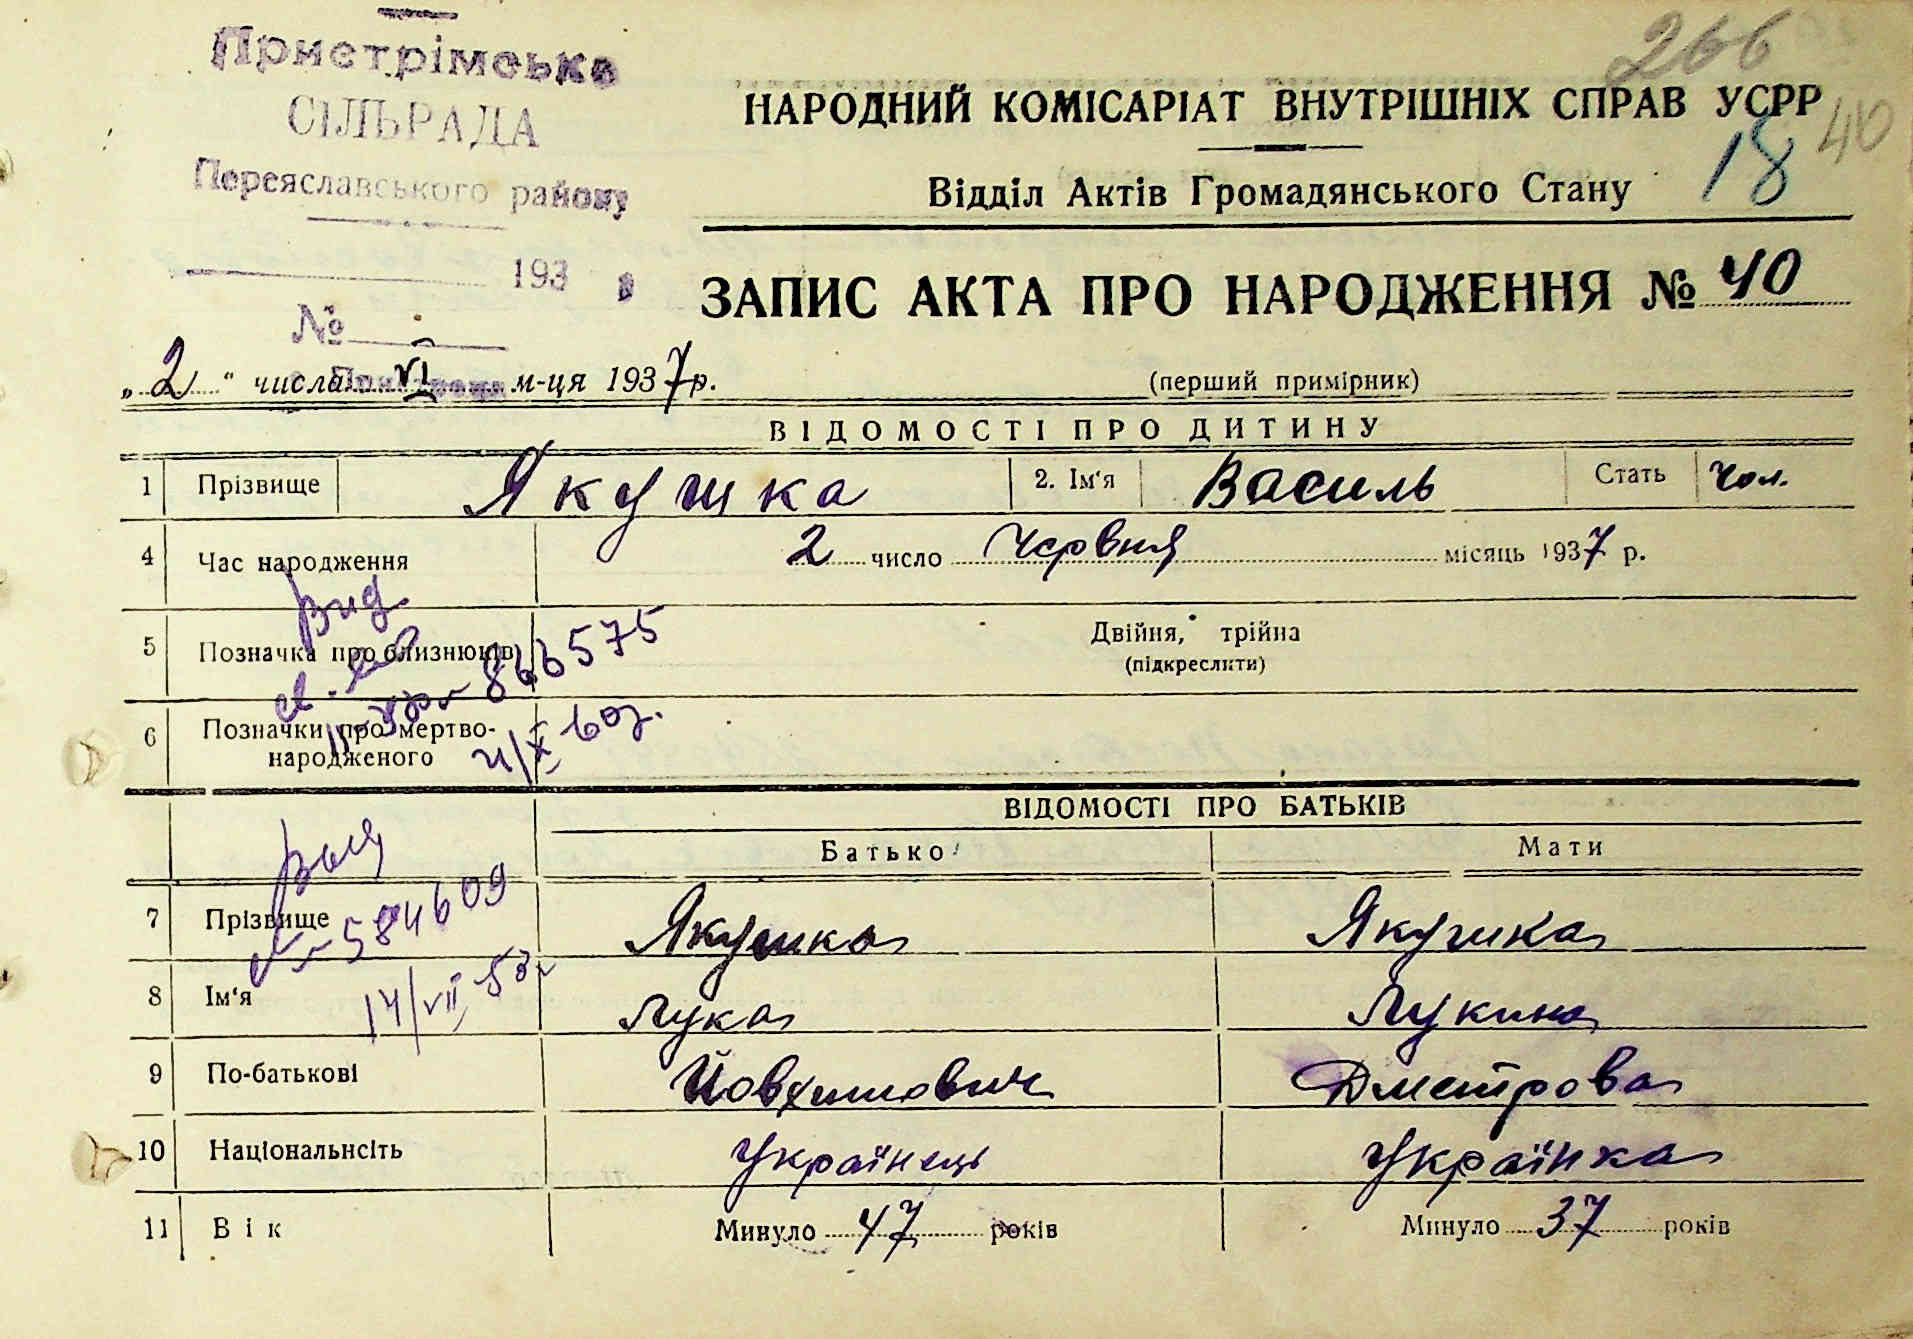 Пристрімська
СІЛЬРАДА
Переяславського району
193
№
266
НАРОДНИЙ КОМІСАРІАТ ВНУТРІШНІХ СПРАВ УСРР
18 40
Відділ Актів Громадянського Стану
ЗАПИС АКТА ПРО НАРОДЖЕННЯ № 40
„2“ числа VI м-ця 1937 р.
(перший примірник)
ВІДОМОСТІ ПРО ДИТИНУ
1 Прізвище Якушка 2. Ім'я Василь Стать Чол.
4 Час народження 2 число Червня місяць 1937 р.
Вид
5 Позначка про близнюків Двійня, трійна
(підкреслити)
866575
6 Позначки про мертво-
народженого
ВІДОМОСТІ ПРО БАТЬКІВ
Батько Мати
7 Прізвище Якушка Якушка
№ 584609
8 Ім'я Лука Лукина
14/VII 53
9 По-батькові Йовхимович Дметрова
10 Національнсіть Українець Українка
11 Вік Минуло 47 років Минуло 37 років